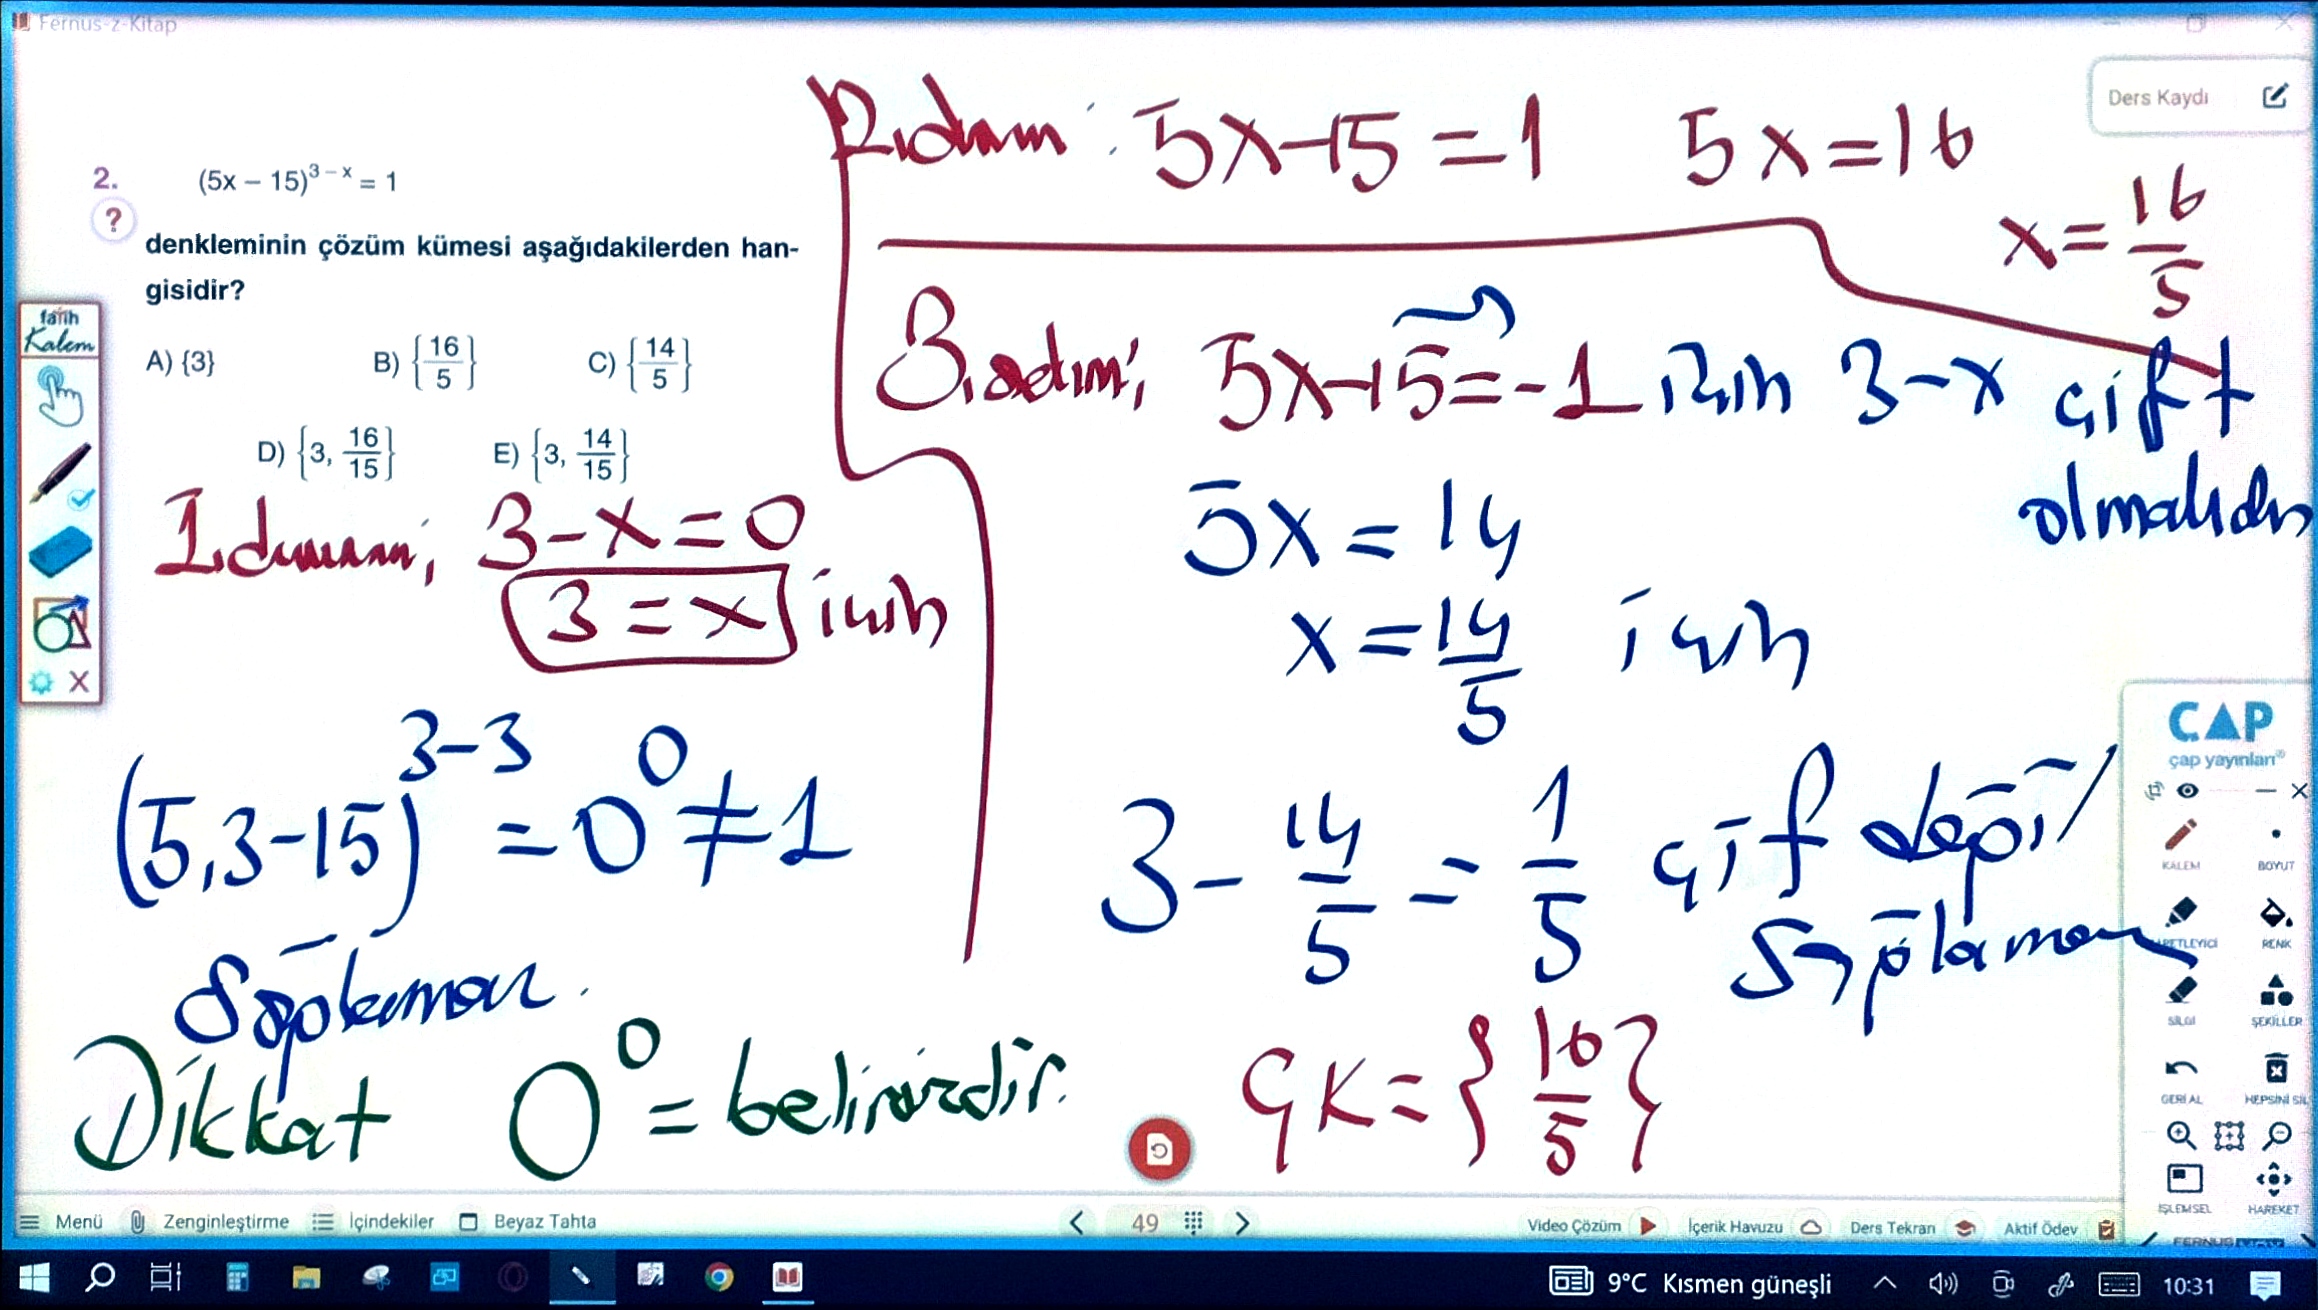 Fernus-z-Kitap
Ders Kaydı
2. (5x – 15)^{3 – x} = 1
?
denkleminin çözüm kümesi aşağıdakilerden han-
gisidir?
A) {3} B) {16/5} C) {14/5}
D) {3, 16/15} E) {3, 14/15}
fatih
Kalem
3-x=0
3=x için
(5.3-15)^{3-3} = 0^0 ≠ 1
Sağlamaz.
Dikkat 0^0 = belirsizdir.
5x-15=1 5x=16
x=16/5
3.adım; 5x-15=-1 için 3-x çift
olmalıdır
5x=14
x=14/5 için
3-14/5=1/5 çift değil
Sağlamaz
ÇK={16/5}
ÇAP
çap yayınları®
KALEM BOYUT
RENK
SİLGİ ŞEKİLLER
GERİ AL HEPSİNİ SİL
İŞLEMSEL HAREKET
Menü Zenginleştirme İçindekiler Beyaz Tahta 49 Video Çözüm İçerik Havuzu Ders Tekrarı Aktif Ödev
9°C Kısmen güneşli 10:31